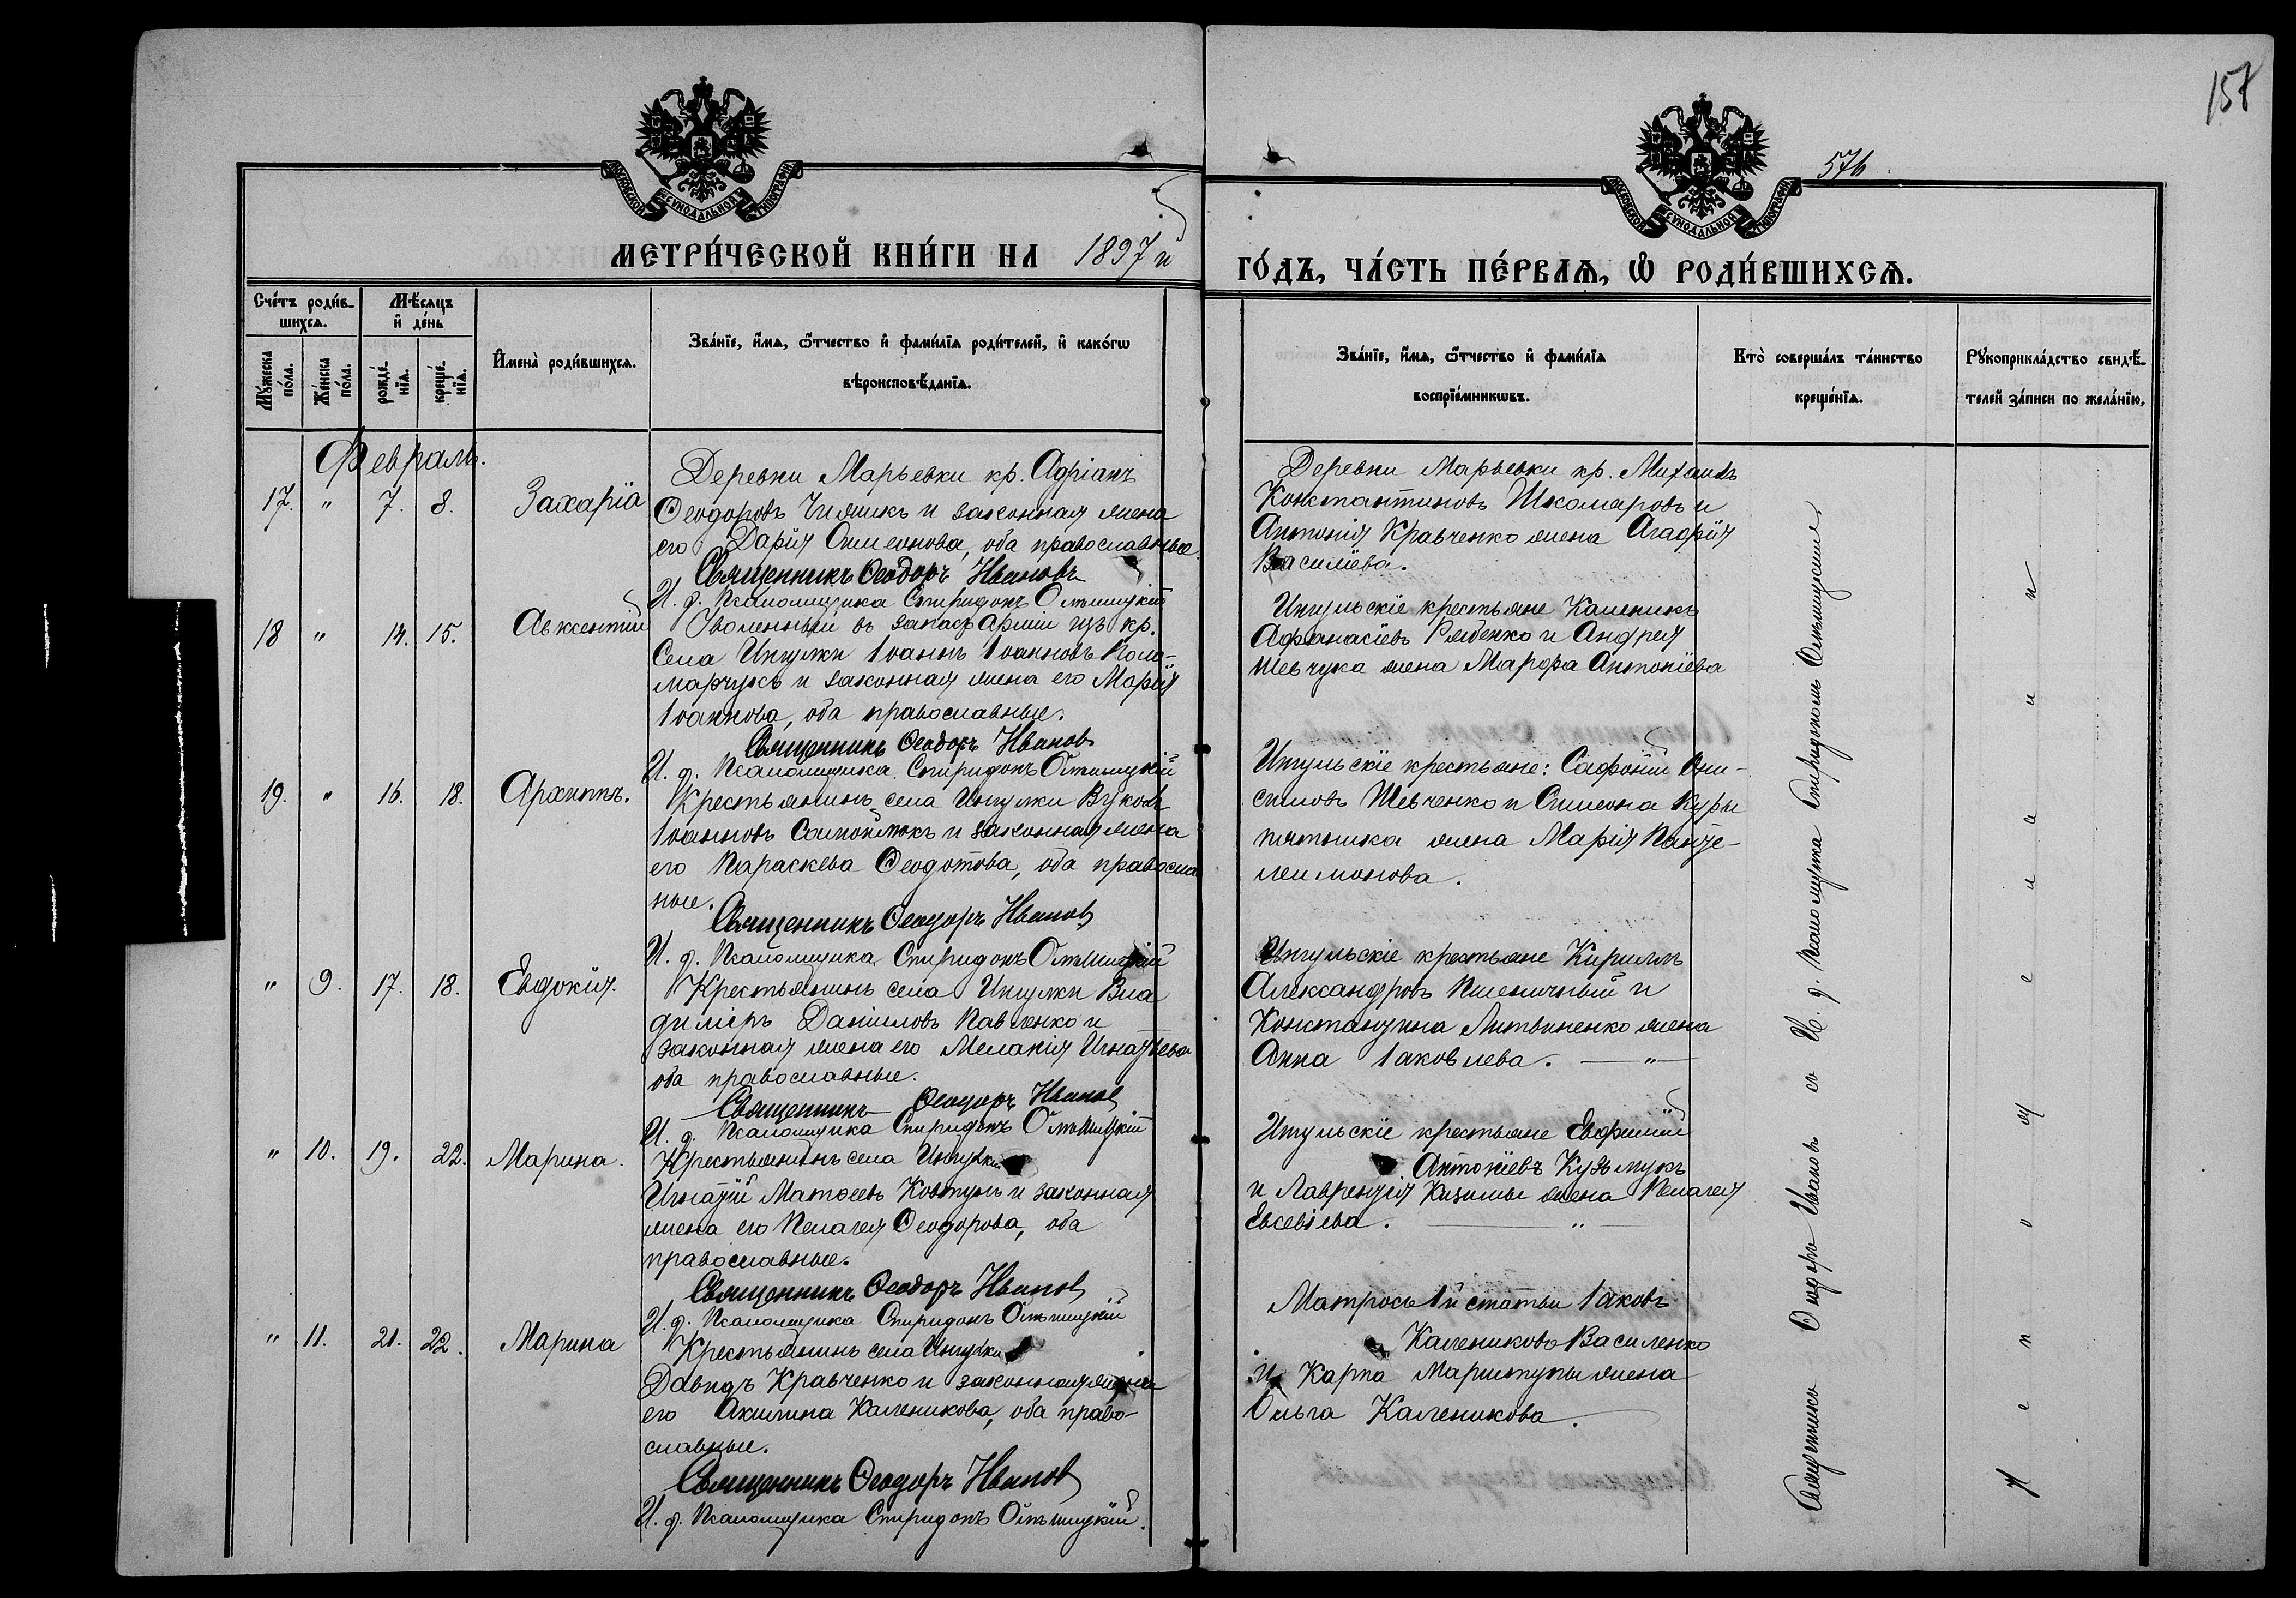 157
576
МОСКОВСКОЙ СѴНОДАЛЬНОЙ ТИПОГРАФІИ
МОСКОВСКОЙ СѴНОДАЛЬНОЙ ТИПОГРАФІИ
МЕТРИ́ЧЕСКОЙ КНИ́ГИ НА 1897й
ГО́ДЪ, ЧА́СТЬ ПЕ́РВАѦ, Ѡ РОДИ́ВШИХСѦ.
Сче́тъ роди́в-
шихсѧ.
Мѣ́сѧцъ
и҆ де́нь
Мꙋ́жеска
по́ла.
Же́нска
по́ла.
рожде́-
нїѧ.
креще́-
нїѧ.
И҆мена̀ роди́вшихсѧ.
Зва́нїе, и҆́мѧ, ѻ҆́тчество и҆ фами́лїѧ роди́телей, и҆ како́гѡ
вѣроисповѣ́данїѧ.
Зва́нїе, и҆́мѧ, ѻ҆́тчество и҆ фами́лїѧ
воспрїе́мникѡвъ.
Кто̀ соверша́лъ та́инство
креще́нїѧ.
Рꙋкоприкла́дство свидѣ́-
телей за́писи по жела́нїю.
Февраль.
17. " 7. 8. Захарія
Деревни Марьевки кр. Адріанъ
Ѳеодоровъ Чижикъ и законная жена
его Дарія Симеонова, оба православные.
Священникъ Ѳеодоръ Ивановъ
И. д. Псаломщика Спиридонъ Ольшицкій
Деревни Марьевки кр. Михаилъ
Константиновъ Шкомаровъ и
Антонія Кравченко жена Агафія
Василіева.
18 " 14. 15. Авксентій
Уволенный въ запасъ Арміи изъ кр.
Села Ингулки Іоаннъ Іоанновъ Поло-
марчукъ и законная жена его Марія
Іоаннова, оба православные.
Священникъ Ѳеодоръ Ивановъ
И. д. Псаломщика Спиридонъ Ольшицкій
Ингульскіе крестьяне Каленикъ
Афанасіевъ Рябенко и Андрея
Шевчука жена Марфа Антоніева
19. " 16. 18. Архиппъ.
Крестьянинъ села Ингулки Вуколъ
Іоанновъ Самойлюкъ и законная жена
его Параскева Ѳеодотова, оба правосла
ные.
Священникъ Ѳеодоръ Ивановъ
И. д. Псаломщика Спиридонъ Ольшицкій
Ингульскіе крестьяне: Сафоній Они-
симовъ Шевченко и Симеона Куры
пятника жена Марія Панте-
леимонова.
" 9. 17. 18. Евдокія.
Крестьянинъ села Ингулки Вла
диміръ Даніиловъ Павленко и
законная жена его Меланія Игнатьева
оба православные.
Священникъ Ѳеодоръ Ивановъ
И. д. Псаломщика Спиридонъ Ольшицкій
Ингульскіе крестьяне Кириллъ
Александровъ Пшеничный и
Константина Литвиненко жена
Анна Іаковлева. — " —
" 10. 19. 22. Марина.
Крестьянинъ села Ингулки
Игнатій Матѳеевъ Ковтунъ и законная
жена его Пелагея Ѳеодорова, оба
православные.
Священникъ Ѳеодоръ Ивановъ
И. д. Псаломщика Спиридонъ Ольшицкій
Ингульскіе крестьяне Евфимій
Антоніевъ Кузьмукъ
и Лаврентія Кизимы жена Пелагея
Евсевіева. — "
" 11. 21. 22. Марина
Крестьянинъ села Ингулки
Давидъ Кравченко и законная жена
его Акилина Каленикова, оба право-
славные.
Священникъ Ѳеодоръ Ивановъ
И. д. Псаломщика Спиридонъ Ольшицкій.
Матросъ 1й статьи Іаковъ
Калениковъ Василенко
и Карпа Мариупы жена
Ольга Каленикова.
Священникъ Ѳеодоръ Ивановъ съ И. д. псаломщика Спиридономъ Ольшицкимъ